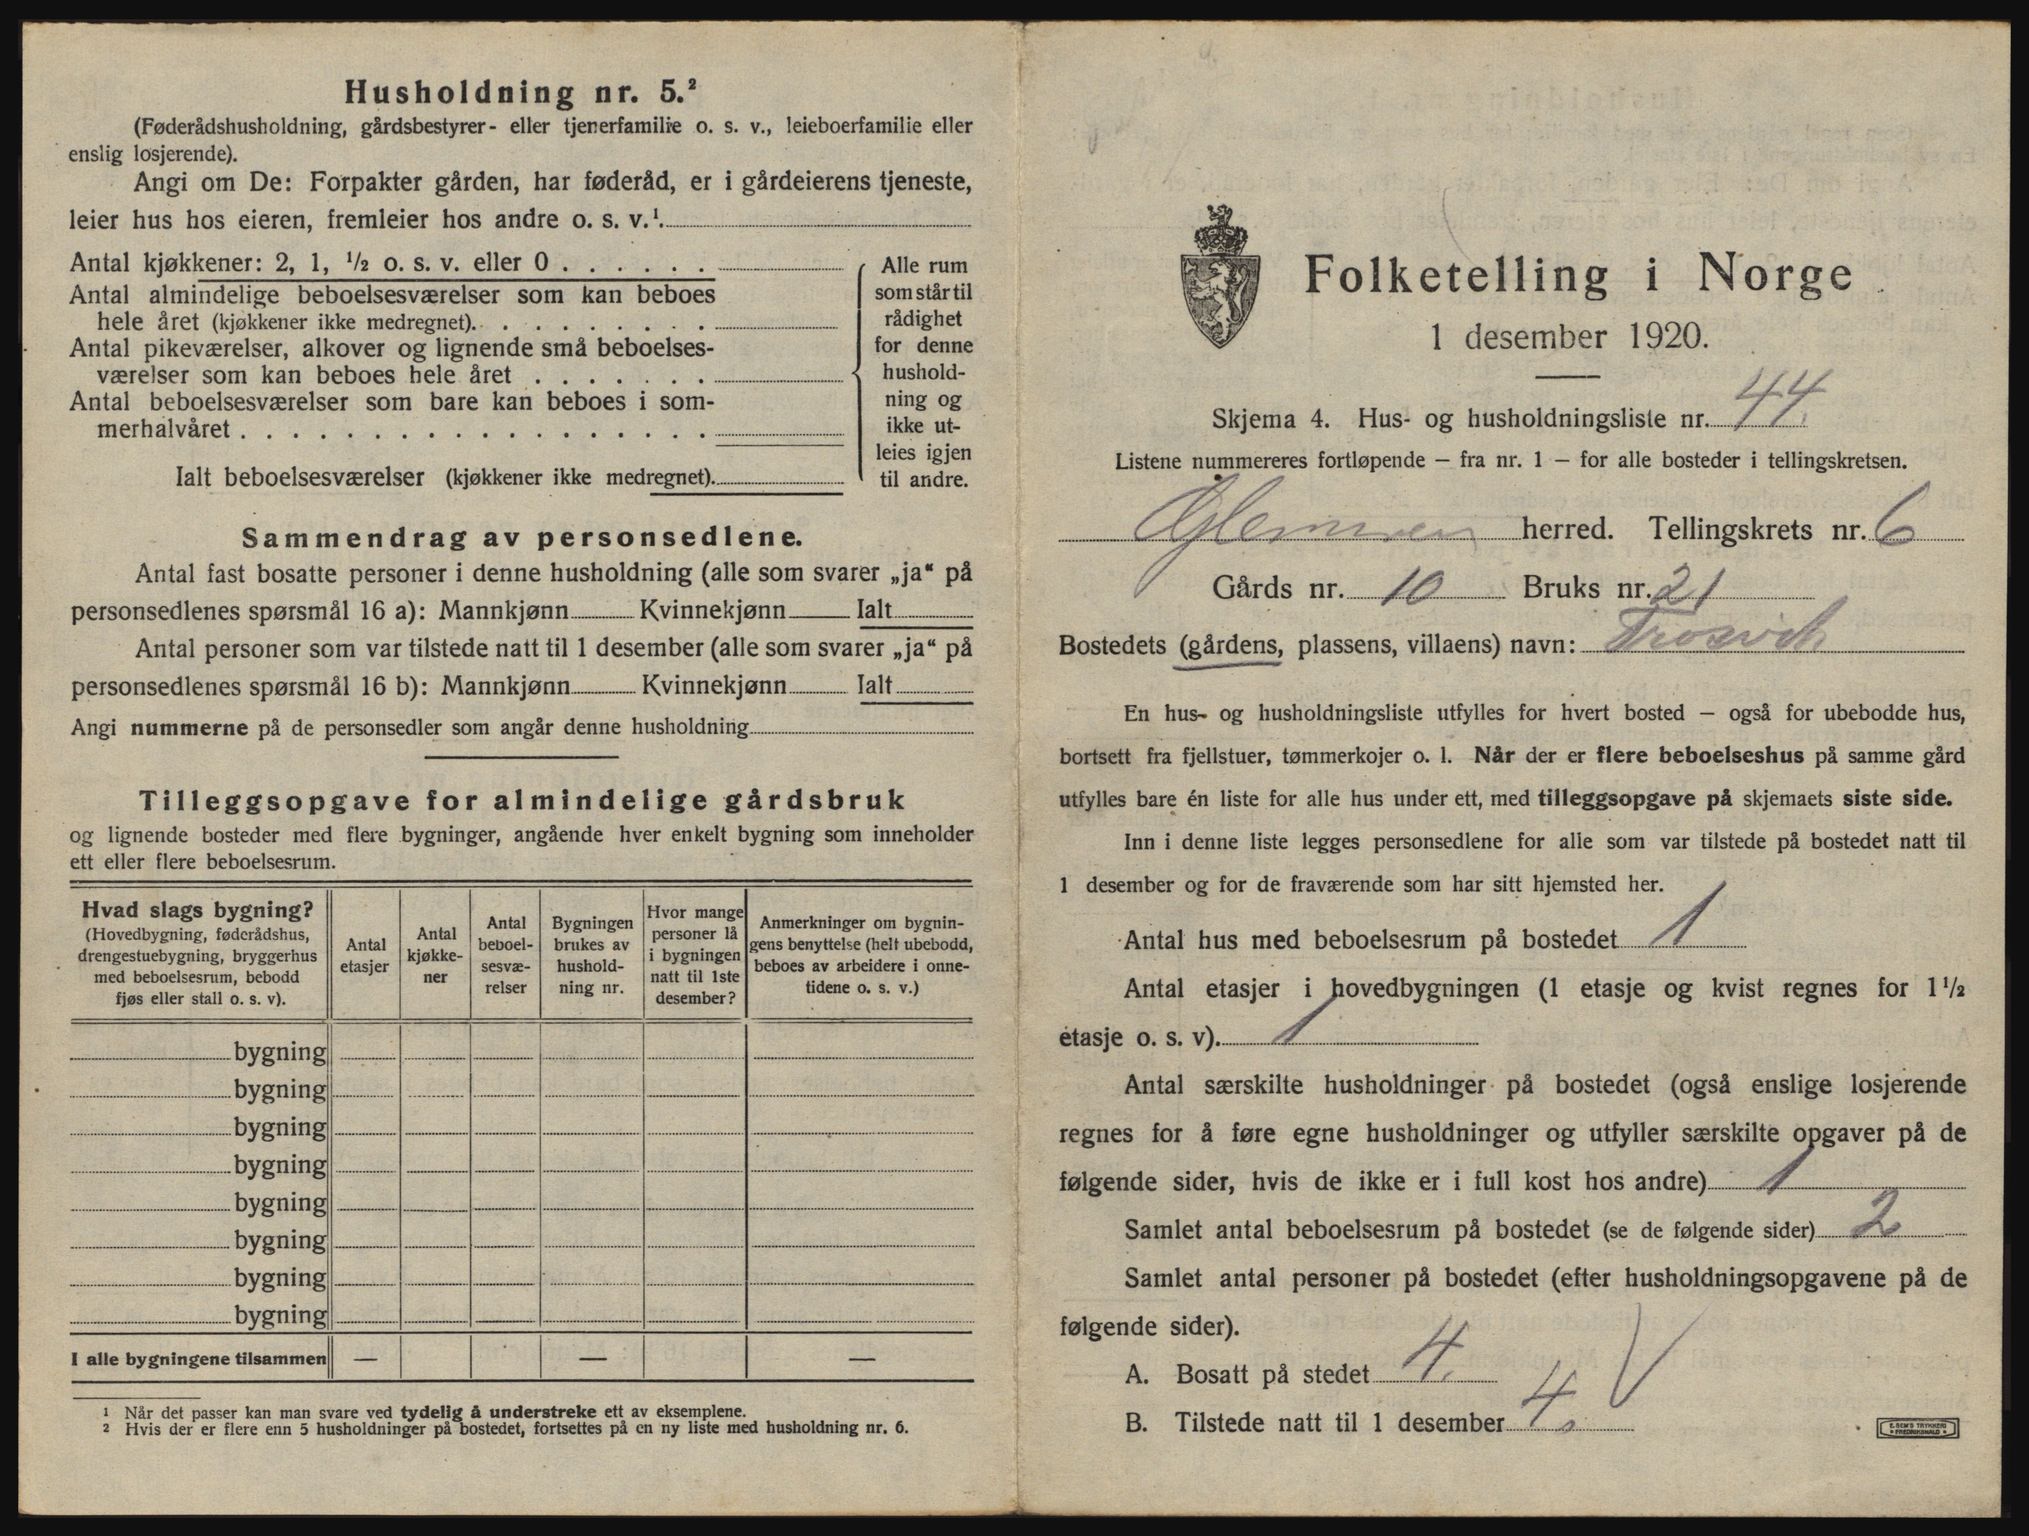 Husholdning nr. 5.²
(Føderådshusholdning, gårdsbestyrer- eller tjenerfamilie o. s. v., leieboerfamilie eller
enslig losjerende).
Angi om De: Forpakter gården, har føderåd, er i gårdeierens tjeneste,
leier hus hos eieren, fremleier hos andre o. s. v.¹.
Antal kjøkkener: 2, 1, ½ o. s. v. eller 0 . . . . . .
Antal almindelige beboelsesværelser som kan beboes
hele året (kjøkkener ikke medregnet). . . . . . . . .
Antal pikeværelser, alkover og lignende små beboelses-
værelser som kan beboes hele året . . . . . . .
Antal beboelsesværelser som bare kan beboes i som-
merhalvåret . . . . . . . . . . . . . . . . . .
Ialt beboelsesværelser (kjøkkener ikke medregnet).
Alle rum
som står til
rådighet
for denne
hushold-
ning og
ikke ut-
leies igjen
til andre.
Sammendrag av personsedlene.
Antal fast bosatte personer i denne husholdning (alle som svarer „ja“ på
personsedlenes spørsmål 16 a): Mannkjønn Kvinnekjønn Ialt
Antal personer som var tilstede natt til 1 desember (alle som svarer „ja“ på
personsedlenes spørsmål 16 b): Mannkjønn Kvinnekjønn Ialt
Angi nummerne på de personsedler som angår denne husholdning
Tilleggsopgave for almindelige gårdsbruk
og lignende bosteder med flere bygninger, angående hver enkelt bygning som inneholder
ett eller flere beboelsesrum.
Hvad slags bygning?
(Hovedbygning, føderådshus,
drengestuebygning, bryggerhus
med beboelsesrum, bebodd
fjøs eller stall o. s. v).
Antal
etasjer
Antal
kjøkke-
ner
Antal
beboel-
sesvæ-
relser
Bygningen
brukes av
hushold-
ning nr.
Hvor mange
personer lå
i bygningen
natt til 1ste
desember?
Anmerkninger om bygnin-
gens benyttelse (helt ubebodd,
beboes av arbeidere i onne-
tidene o. s. v.)
bygning
bygning
bygning
bygning
bygning
bygning
bygning
bygning
I alle bygningene tilsammen — — —
¹ Når det passer kan man svare ved tydelig å understreke ett av eksemplene.
² Hvis der er flere enn 5 husholdninger på bostedet, fortsettes på en ny liste med husholdning nr. 6.
Folketelling i Norge
1 desember 1920.
Skjema 4. Hus- og husholdningsliste nr. 44.
Listene nummereres fortløpende – fra nr. 1 – for alle bosteder i tellingskretsen.
Glemmen herred. Tellingskrets nr. 6
Gårds nr. 10 Bruks nr. 21
Bostedets (gårdens, plassens, villaens) navn: Trosvik
En hus- og husholdningsliste utfylles for hvert bosted – også for ubebodde hus,
bortsett fra fjellstuer, tømmerkojer o. l. Når der er flere beboelseshus på samme gård
utfylles bare én liste for alle hus under ett, med tilleggsopgave på skjemaets siste side.
Inn i denne liste legges personsedlene for alle som var tilstede på bostedet natt til
1 desember og for de fraværende som har sitt hjemsted her.
Antal hus med beboelsesrum på bostedet 1
Antal etasjer i hovedbygningen (1 etasje og kvist regnes for 1½
etasje o. s. v). 1
Antal særskilte husholdninger på bostedet (også enslige losjerende
regnes for å føre egne husholdninger og utfyller særskilte opgaver på de
følgende sider, hvis de ikke er i full kost hos andre) 1
Samlet antal beboelsesrum på bostedet (se de følgende sider) 2
Samlet antal personer på bostedet (efter husholdningsopgavene på de
følgende sider).
A. Bosatt på stedet 4.
B. Tilstede natt til 1 desember 4.
E. SEM'S TRYKKERI
• FREDRIKSHALD •